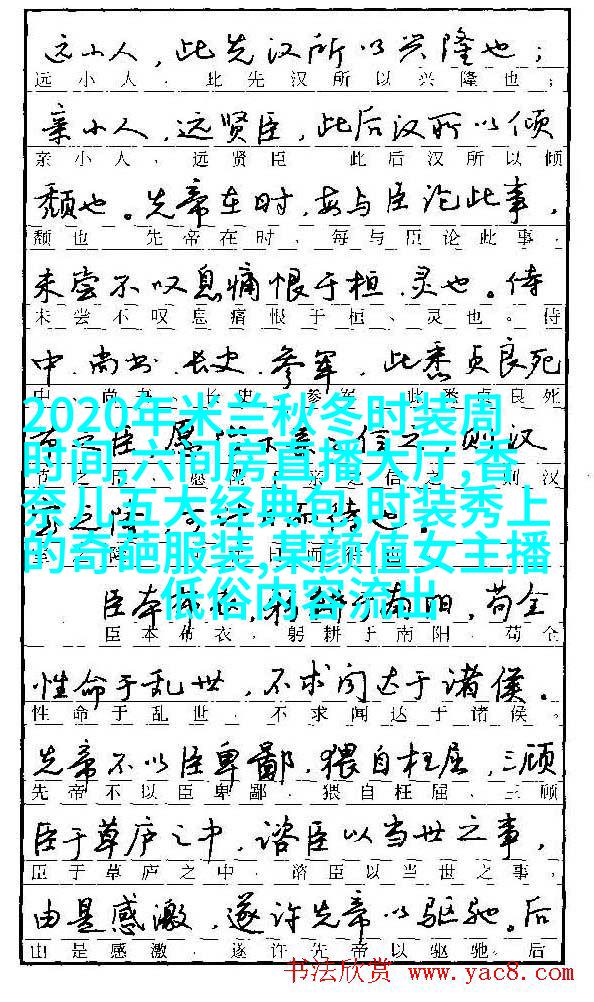 远小人，此先汉所以兴隆也；
远小人，此先汉所以兴隆也；
亲小人，远贤臣，此后汉所以倾
亲小人，远贤臣 此后汉所以倾
颓也。先帝在时，每与臣论此事，
颓也 先帝在时，每与臣论此事，
未尝不叹息痛恨于桓、灵也。侍
未尝不叹息痛恨于桓、灵也。侍
中、尚书、长史、参军，此悉贞良死
良死
2020年米兰秋冬时装周
时间,六间房直播大厅,香
奈儿五大经典句,时装秀上
的奇葩服装,某颜值女主播
低俗内容流出
之臣，愿 下亲之信之，则汉
则汉
之隆，可 待也。
臣本布衣，躬耕于南阳，苟全
臣本布衣，躬耕于南阳，苟全
性命于乱世，不求闻达于诸侯。
性命于乱世，不求闻达于诸侯。
先帝不以臣卑鄙，猥自枉屈，三顾
先帝不以臣卑鄙，猥自枉屈、三顾
臣于草庐之中，谘臣以当世之事，
臣于草庐之中，谘臣以当世之事，
由是感激，遂许先帝以驱驰。后
由是感激，遂许先帝以驱驰。后
书法欣赏 www.yac8.com